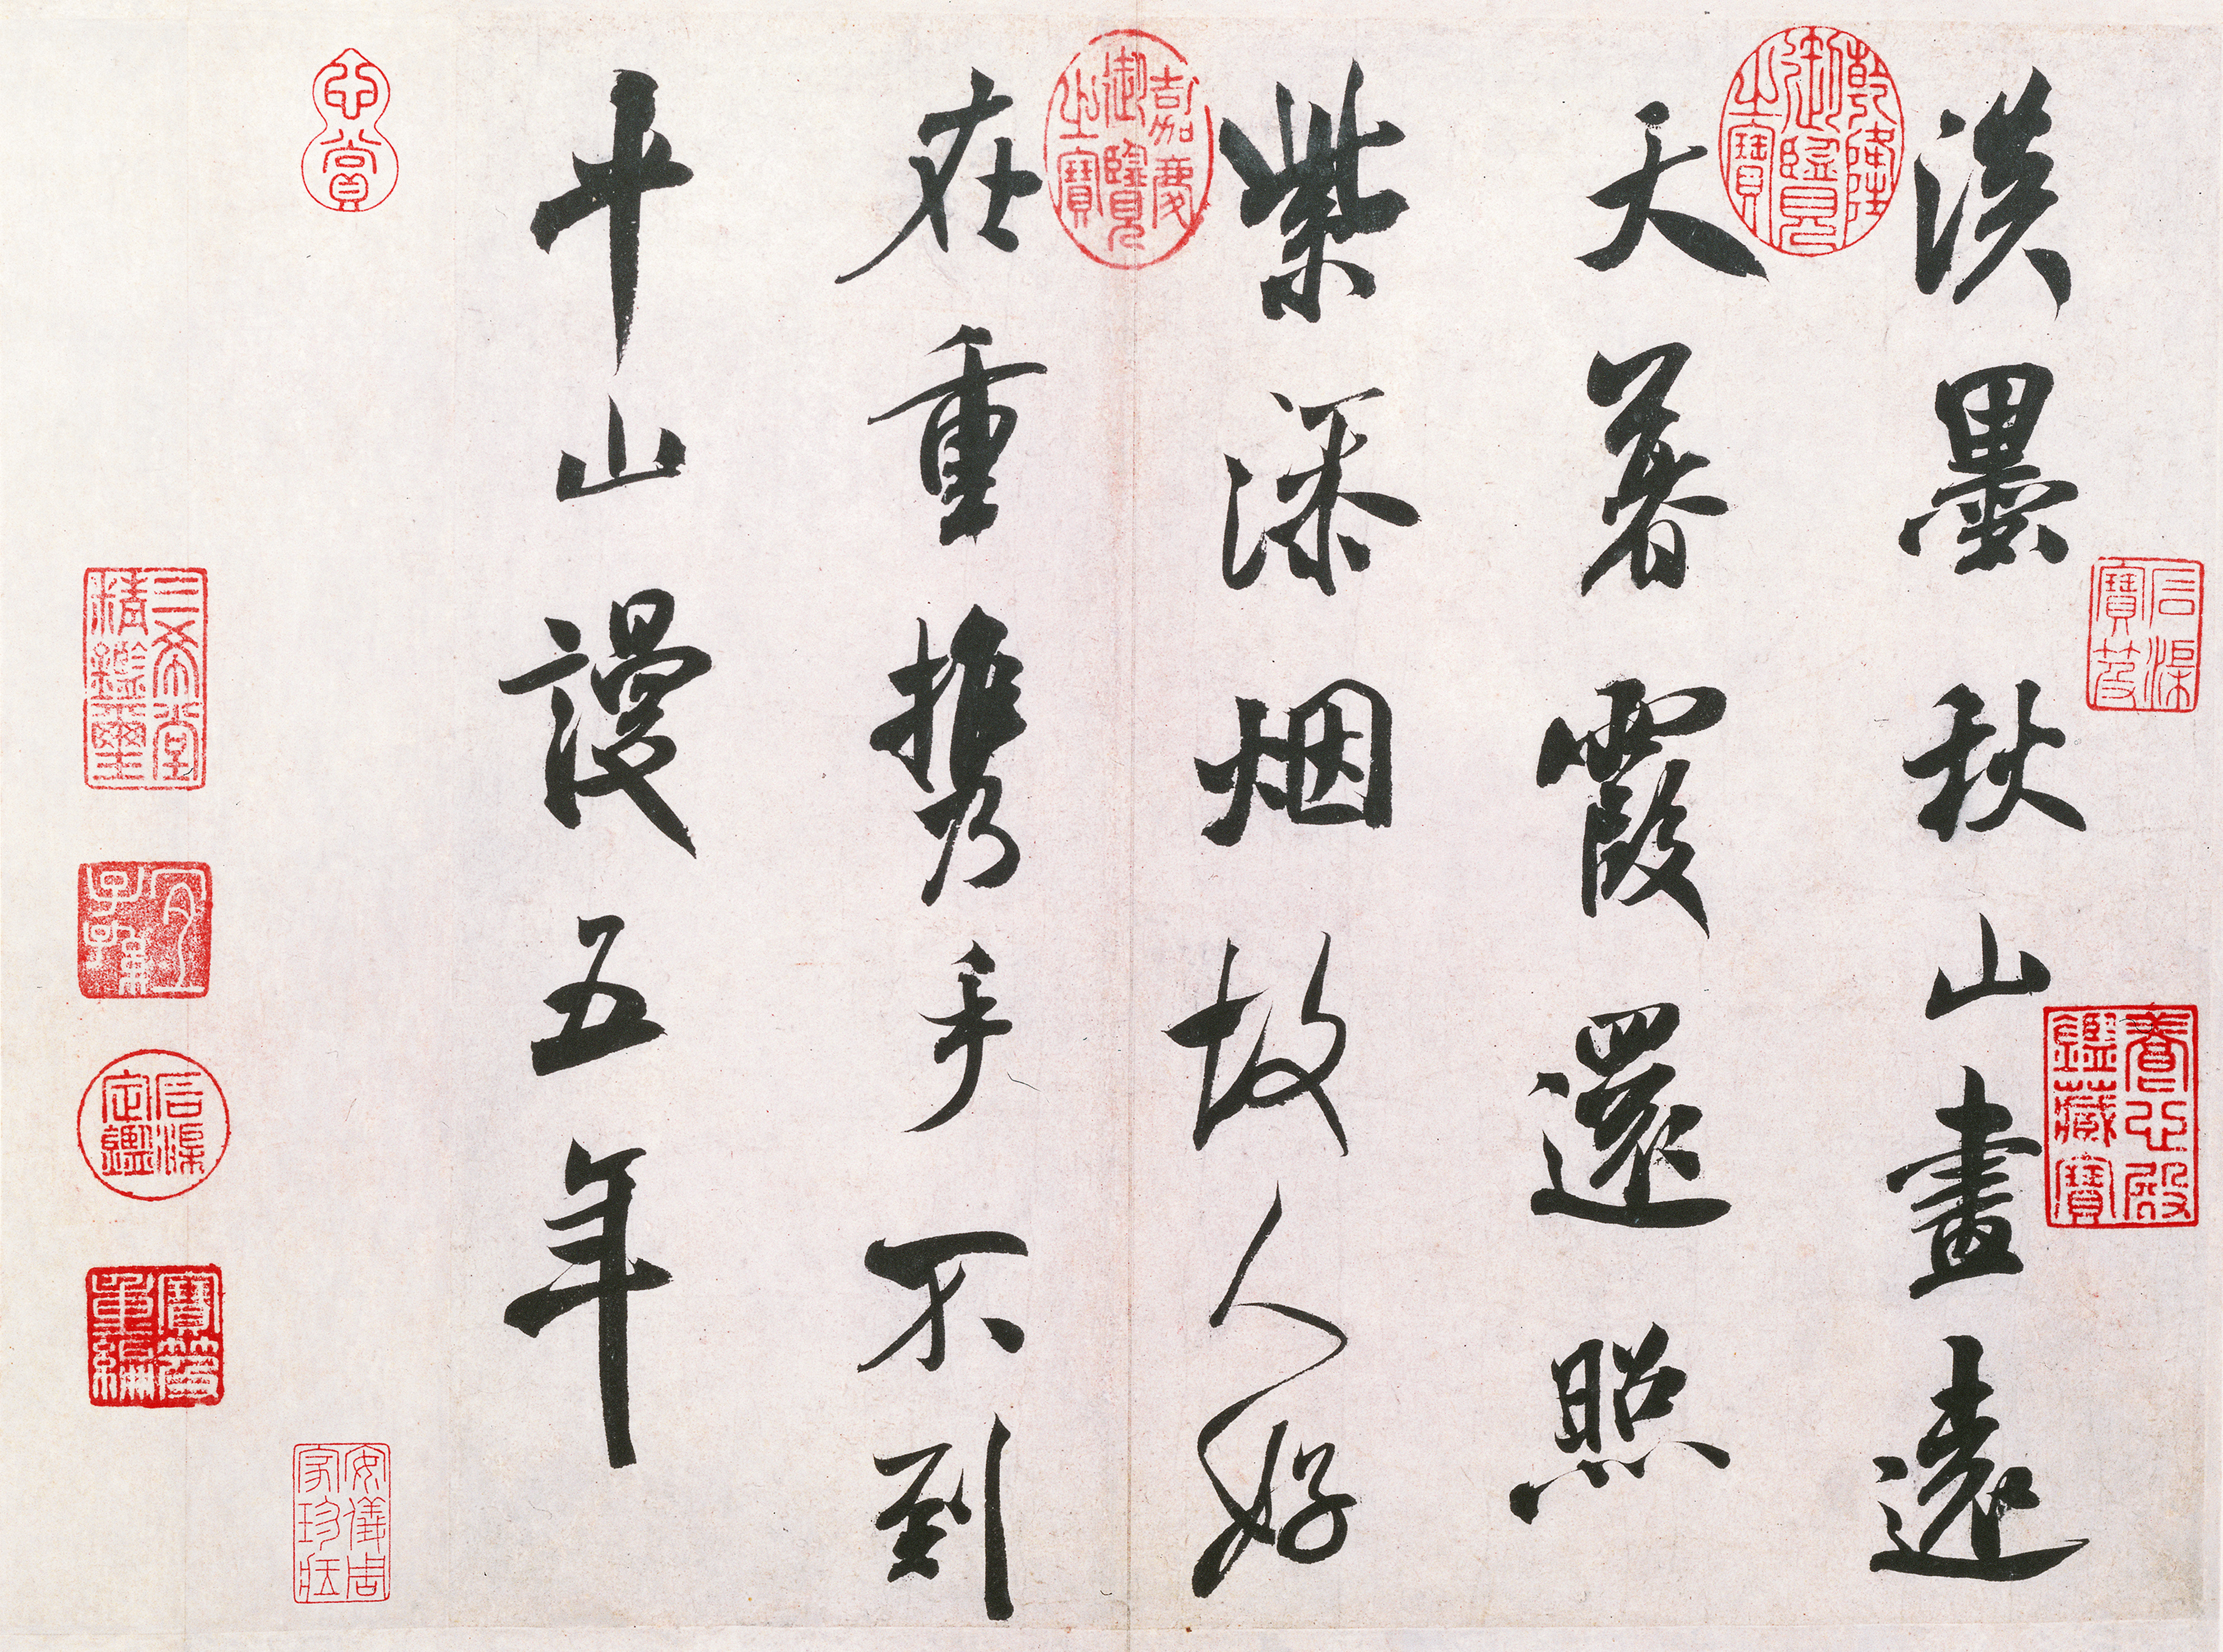 淡墨秋山畫遠
天暮霞還照
紫添烟故人好
在重携手不到
平山謾五年
乾隆御覽之寶
嘉慶御覽之寶
石渠寶笈
養心殿鑑藏寶
心賞
三希堂精鑑璽
宜子孫
石渠定鑑
寶笈重編
安儀周家珍藏